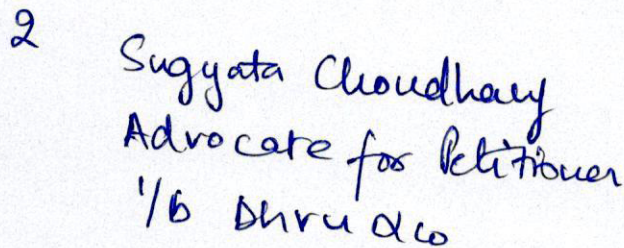 2
Sugyata Choudhary
Advocate for Petitioner
i/b Dhru & co